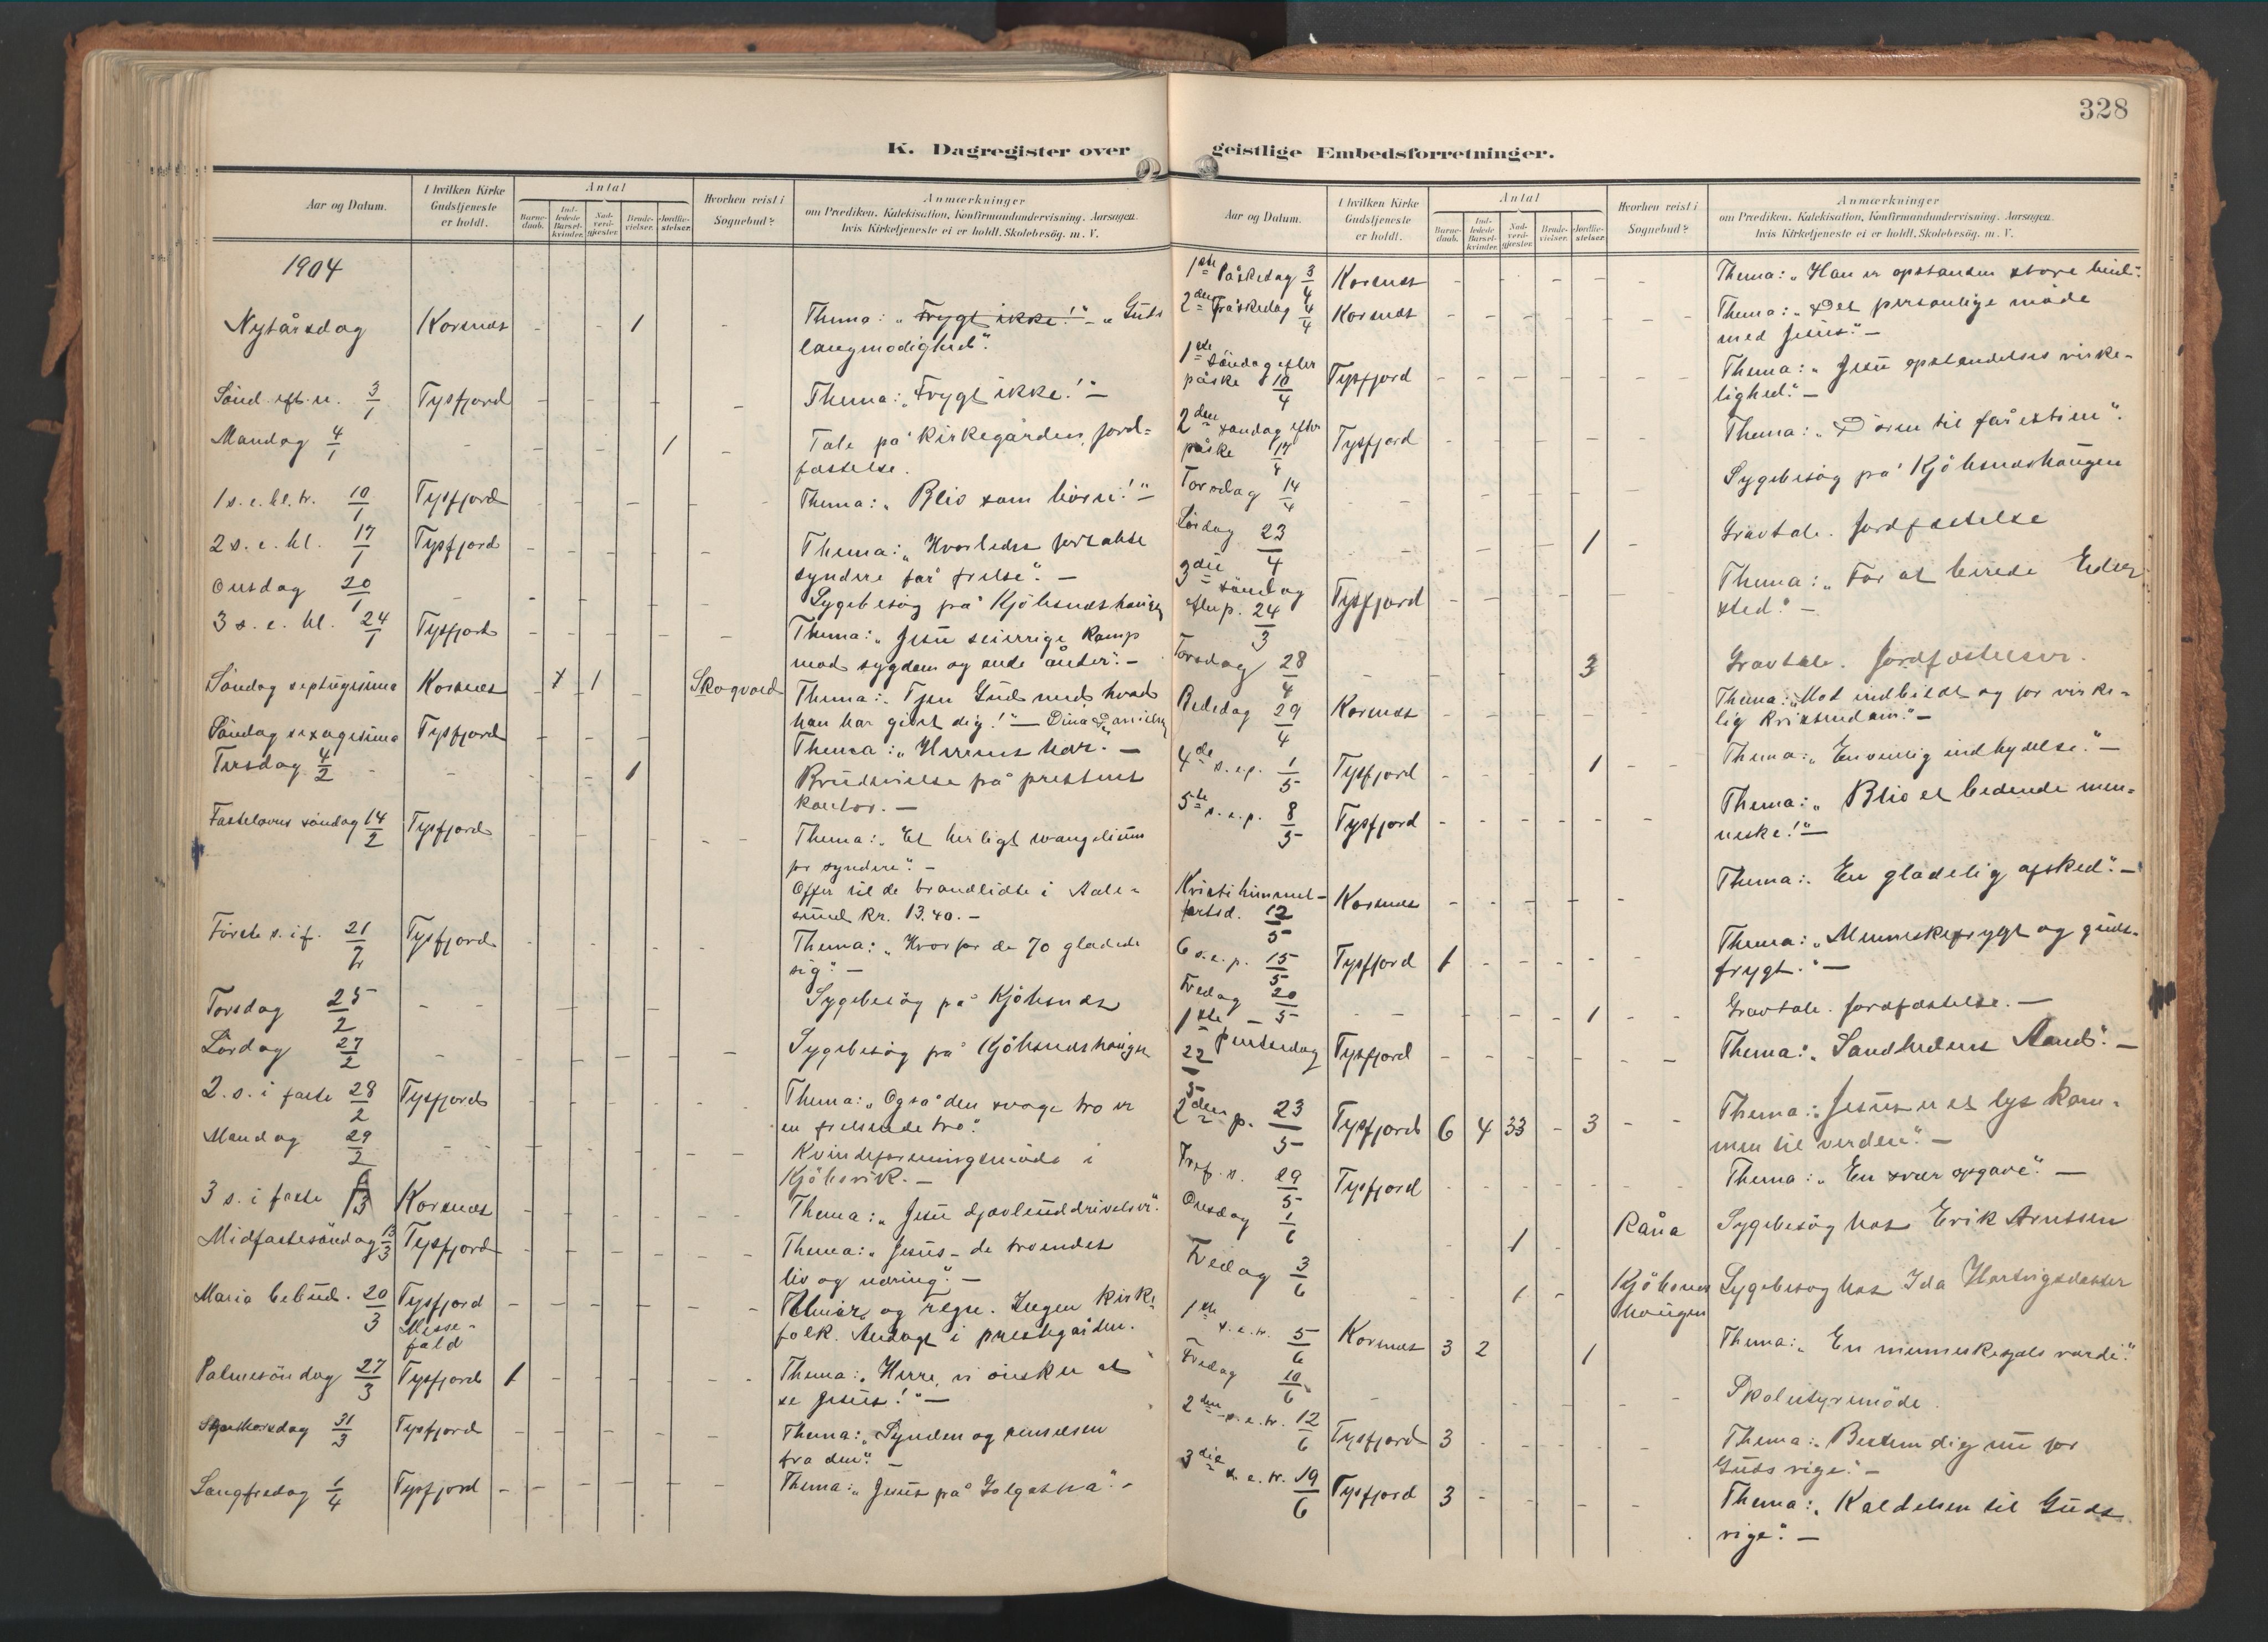 328
K. Dagregister over geistlige Embedsforretninger.
Aar og Datum. I hvilken Kirke Gudstjeneste er holdt. Antal Barnedaab. Indledede Barselkvinder. Nadverdgjester. Brudevielser. Jordfæstelser. Hvorhen reist i Sognebud? Anmærkninger om Prædiken, Katekisation, Konfirmandundervisning. Aarsagen, hvis Kirketjeneste ei er holdt. Skolebesög. m. V.
1904
Nytårsdag Korsnæs - - - 1 Thema: „Frygt ikke!" - „Guds
langmodighed". 
Sönd. eft. n. 3/1 Tysfjord - - - - Thema: „Frygt ikke!" -
Mandag 4/1 - - - 1 - Tale på kirkegården, jord-
fæstelse.
1 s. e. hl. tr. 10/1 Tysfjord - - - - Thema: „Bliv som börn!" -
2 s. e. hl. 17/1 Tysfjord - - - - - Thema: „Hvorledes fortabte
syndere får frelse". -
Onsdag 20/1 - - - - - Sygebesög på Kjöbsnæshaugen
3 s. e. hl. 24/1 Tysfjord - - - - - Thema: „Jesu seierrige kamp
mod sygdom og onde ånder". -
Söndag septuagesima Korsnæs - 1 1 Skogvold Thema: „Tjen Gud med hvad
han har givet dig!" - Dina Danielsen
Söndag sexagesima Tysfjord - - - Thema: „Herrens har". -
Tirsdag 4/2 - - 1 Brudevielse på prestens
kontor. -
Fastelavns söndag 14/2 Tysfjord - - - - - Thema: „Et herligt evangelium
for syndere". -
Offer til de brandlidte i Aale-
sund Kr. 13.40. -
Förste s. i f. 21/2 Tysfjord - - - - - Thema: „Hvorfor de 70 glædede
sig". -
Torsdag 25/2 - - - - - Sygebesög på Kjöbsnæs
Lördag 27/2 - - - - - Sygebesög på Kjöbsnæshaugen
2. s. i faste 28/2 Tysfjord - - - - - Thema: „Også den svage tro er
en frelsende tro".
Mandag 29/2 - - - - - Kvindeforeningsmöde i
Kjöbsvik. -
3 s. i faste 6/3 Korsnæs - - - - - Thema: „Jesu djævleuddrivelser".
Midfastesöndag 13/3 Tysfjord - - - - - Thema: „Jesus - de troendes
liv og næring". -
Maria bebud. 20/3 Tysfjord - - - - - og regn. Ingen kirke-
Messe- folk. Andagt i prestegården.
fald
Palmesöndag 27/3 Tysfjord 1 - - - - - Thema: „Herre, vi önsker at
se Jesus!" -
Skjærtorsdag 31/3 Tysfjord - - - - - Thema: „Synden og renselsen
fra den". -
Langfredag 1/4 Tysfjord - - - - - Thema: „Jesus på Golgatha". -
Aar og Datum. I hvilken Kirke Gudstjeneste er holdt. Antal Barnedaab. Indledede Barselkvinder. Nadverdgjester. Brudevielser. Jordfæstelser. Hvorhen reist i Sognebud? Anmærkninger om Prædiken, Katekisation, Konfirmandundervisning. Aarsagen, hvis Kirketjeneste ei er holdt. Skolebesög. m. V.
1ste Påskedag 3/4 Korsnæs - - - - - Thema: „Han er opstanden store
2den Påskedag 4/4 Korsnæs - - - - - Thema: „Det personlige möde
med Jesus". -
1ste söndag efter
påske 10/4 Tysfjord - - - - - - Thema: „Jesu opstandelses virke-
lighed". -
2den söndag efter
påske 17/4 Tysfjord - - - - - Thema: „Dören til fårestien".
Torsdag 14/4 - - - - - Sygebesög på Kjöbsnæshaugen
Lördag 23/4 - - - 1 - Gravtale. Jordfæstelse
3die söndag
efter p. 24/3 Tysfjord - - - - - Thema: „For at berede Eder
sted". -
Torsdag 28/4 - - - 3 Gravtale. Jordfæstelser.
Bededag 29/4 Korsnæs - - - - - Thema: „Mod indbildt og for virke-
lig kristendom". -
4de s. e. p. 1/5 Tysfjord - - - - 1 - Thema: „En venlig indbydelse". -
5te s. e. p. 8/5 Tysfjord - - - - - - Thema: „Bliv et bedende men-
neske!" -
Kristi himmel-
fartsd. 12/5 Korsnæs - - - - - Thema: „En glædelig afsked". -
6 s. e. p. 15/5 Tysfjord 1 - - - - - Thema: „Menneskefrygt og guds-
frygt." -
Fredag 20/5 - - - - 1 - - Gravtale. Jordfæstelse. -
1ste pintsedag
22/5 Tysfjord - - - - - - Thema: „Sandhedens Aand". -
2den p. 23/5 Tysfjord 6 4 33 - 3 - - Thema: „Jesus er et lys kom-
men til verden". -
Tref. s. 29/5 Tysfjord - - - - - - Thema: „En svær opgave". -
Onsdag 1/6 - - 1 - Råna Sygebesög hos Erik Arntsen
Fredag 3/6 - - 1 - Kjöbsnes Sygebesög hos Ida Hartvigsdatter
haugen
1ste s. e. tr. 5/6 Korsnæs 3 2 1 Thema: „En menneskesjæls værdi".
Fredag 10/6 - - - - Skolestyremöde.
2den s. e. tr. 12/6 Tysfjord 3 - - - - - Thema: „Bestem dig nu for
Guds rige". -
3die s. e. tr. 19/6 Tysfjord 3 - - - - - Thema: „Kaldelsen til Guds
rige". -